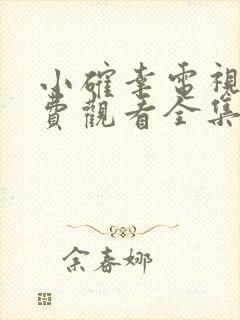 小確幸電視
費觀看全集
余春娜